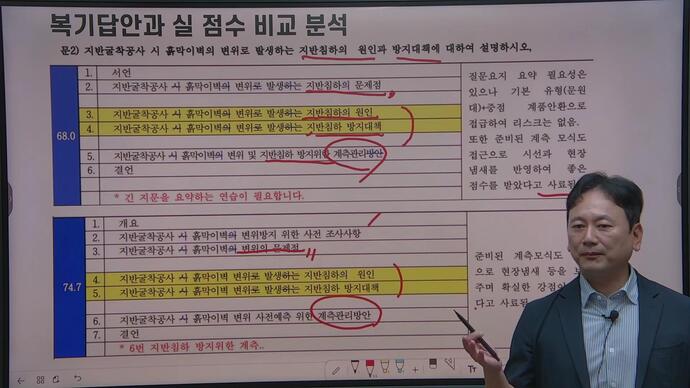 복기답안과 실 점수 비교 분석
문2) 지반굴착공사 시 흙막이벽의 변위로 발생하는 지반침하의 원인과 방지대책에 대하여 설명하시오.
68.0
1. 서언
2. 지반굴착공사 시 흙막이벽의 변위로 발생하는 지반침하의 문제점
3. 지반굴착공사 시 흙막이벽의 변위로 발생하는 지반침하의 원인
4. 지반굴착공사 시 흙막이벽의 변위로 발생하는 지반침하 방지대책
5. 지반굴착공사 시 흙막이벽의 변위 및 지반침하 방지위한 계측관리방안
6. 결언
* 긴 지문을 요약하는 연습이 필요합니다.
질문요지 요약 필요성은
있으나 기본 유형(문원
대)+중점 계품안환으로
접급하여 리스크는 없음.
또한 준비된 계측 모식도
접근으로 시선과 현장
냄새를 반영하여 좋은
점수를 받았다고 사료됨
74.7
1. 개요
2. 지반굴착공사 시 흙막이벽의 변위방지 위한 사전 조사사항
3. 지반굴착공사 시 흙막이벽의 변위의 문제점
4. 지반굴착공사 시 흙막이벽의 변위로 발생하는 지반침하의 원인
5. 지반굴착공사 시 흙막이벽의 변위로 발생하는 지반침하 방지대책
6. 지반굴착공사 시 흙막이벽 변위 사전예측 위한 계측관리방안
7. 결언
* 6번 지반침하 방지위한 계측..
준비된 계측모식도
으로 현장냄새 등을
주며 확실한 강점
다고 사료됨